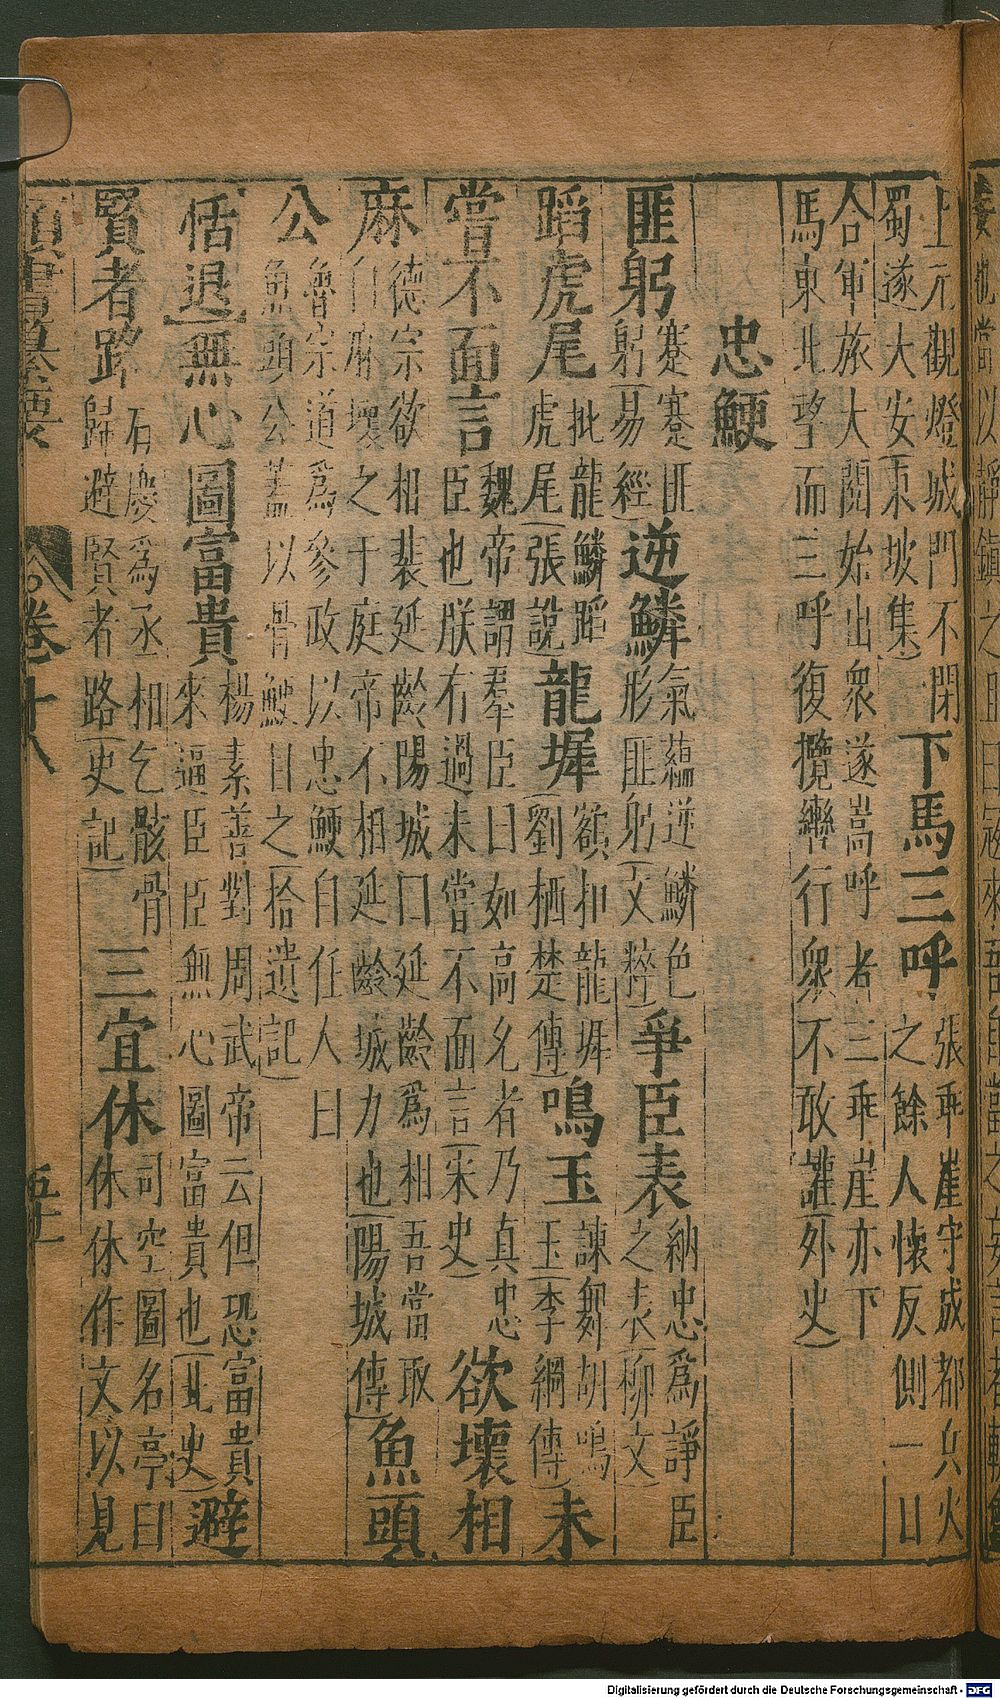 上元觀燈城門不閉
蜀遂大安(東坡集)
下馬三呼
張乖崖守成都兵火
之餘人懷反側一日
合軍旅大閱始出眾遂嵩呼者三乖崖亦下
馬東北望而三呼復攬轡行眾不敢讙(外史)
忠鯁
匪躬
蹇蹇匪
躬(易經)
逆鱗
氣藴逆鱗色
形匪躬(文粹)
爭臣表
納忠為諍臣
之表(柳文)
蹈虎尾
批龍鱗蹈
虎尾(張說)
龍墀
欲扣龍墀
(劉栖楚傳)
鳴玉
諫舞胡鳴
玉(李綱傳)
未
嘗不面言
魏帝謂羣臣曰如高允者乃真忠
臣也朕有過未嘗不面言(宋史)
欲壞相
麻
德宗欲相裴延齡陽城曰延齡為相吾當取
白麻壞之于庭帝不相延齡城力也(陽城傳)
魚頭
公
魯宗道為參政以忠鯁自任人曰
魚頭公蓋以骨鯁目之(拾遺記)
恬退
無心圖富貴
楊素善對周武帝云但恐富貴
來逼臣臣無心圖富貴也(北史)
避
賢者路
石慶為丞相乞骸骨
歸避賢者路(史記)
三宜休
司空圖名亭曰
休休作文以見
類書纂要
卷十八
Digitalisierung gefördert durch die Deutsche Forschungsgemeinschaft - DFG